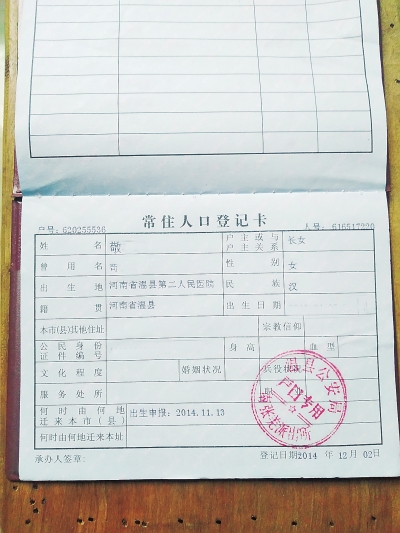 常住人口登记卡
户号: 620255536 人号: 616517220
姓名 敬 户主或与户主关系 长女
曾用名 苟 性别 女
出生地 河南省温县第二人民医院 民族 汉
籍贯 河南省温县 出生日期
本市(县)其他住址 宗教信仰
公民身份证件编号 身高 血型
文化程度 婚姻状况 兵役状况
服务处所
何时由何地迁来本市(县) 出生申报: 2014.11.13
何时由何地迁来本址
承办人签章: 登记日期2014 年 12 月 02日
温县公安局
户口专用